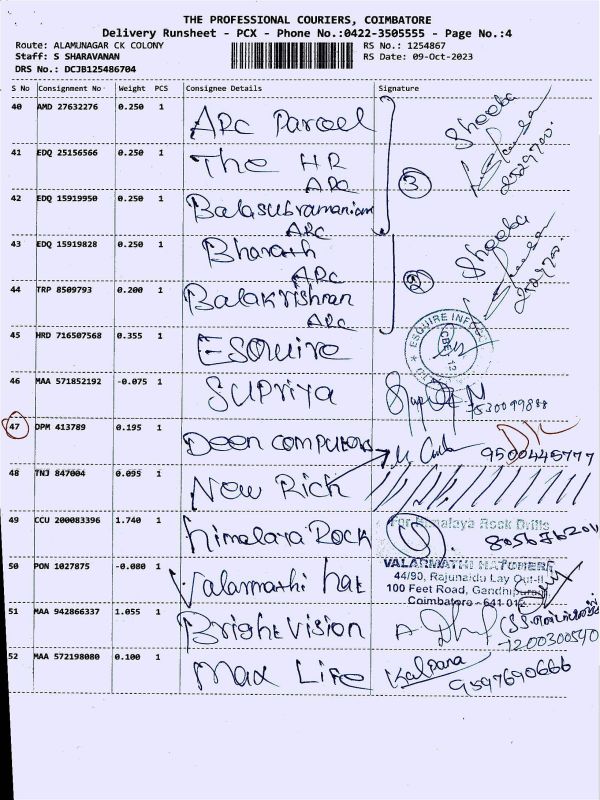 THE PROFESSIONAL COURIERS, COIMBATORE
Delivery Runsheet - PCX - Phone No.:0422-3505555 - Page No.:4
Route: ALAMUNAGAR CK COLONY RS No.: 1254867
Staff: S SHARAVANAN RS Date: 09-Oct-2023
DRS No.: DCJB125486704
S No Consignment No Weight PCS Consignee Details Signature
40 AMD 27632276 0.250 1 ARC Parcel Sheeba
41 EDQ 25156566 0.250 1 The HR
ARC 3
42 EDQ 15919950 0.250 1 Balasubramaniam
ARC
43 EDQ 15919828 0.250 1 Bharath Sheeba
ARC 2
44 TRP 8509793 0.200 1 Balakrishnan
ARC
45 HRD 716507568 0.355 1 ESquire ESQUIRE
46 MAA 571852192 -0.075 1 Supriya
47 DPM 413789 0.195 1 Deen computers 9500445777
48 TNJ 847004 0.095 1 New Rich
49 CCU 200083396 1.740 1 himalaya Rock For Himalaya Rock Drills
50 PON 1027875 -0.080 1 Valarmathi hat VALARMATHI
44/90, Rajunaidu Lay Out-II,
100 Feet Road, Gandhipuram,
Coimbatore - 641 012
51 MAA 942866337 1.055 1 Bright vision
52 MAA 572198080 0.100 1 Max Life Kalpana
9597690666